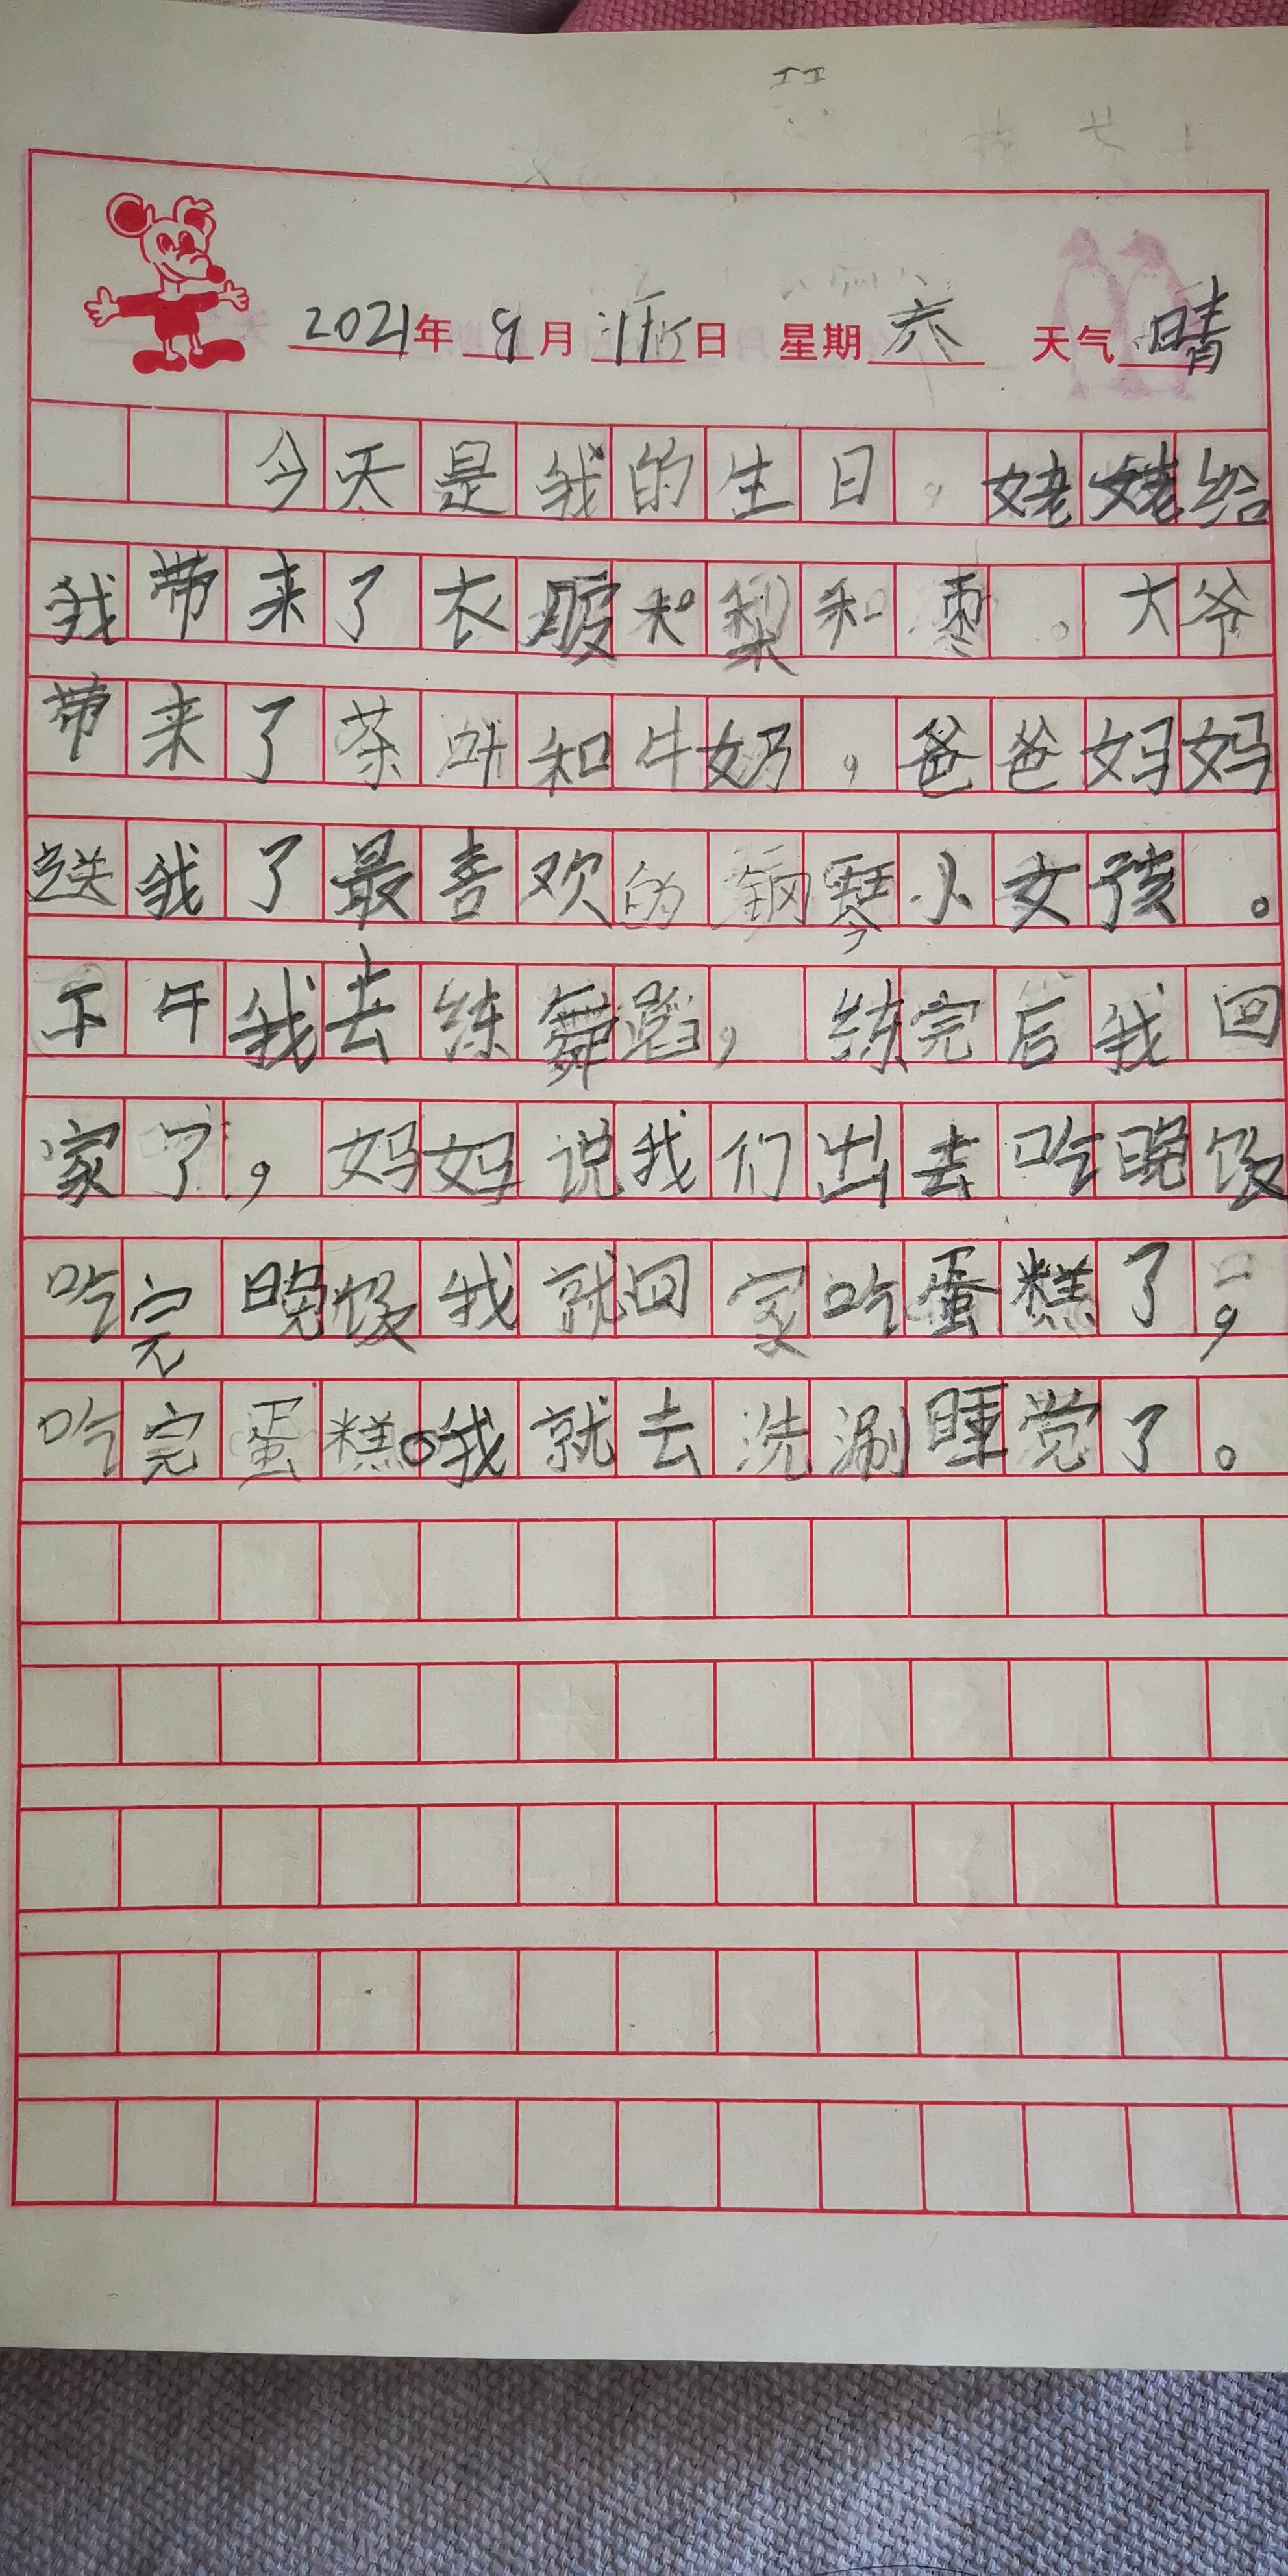 2021年9月日 星期六 天气晴
今天是我的生日，姥姥给
我带来了衣服和梨和枣。大爷
带来了茶叶和牛奶，爸爸妈妈
送我了最喜欢的钢琴小女孩。
下午我去练舞蹈，练完后我回
家了，妈妈说我们出去吃晚饭
吃完晚饭我就回家吃蛋糕了，
吃完蛋糕。我就去洗涮睡觉了。